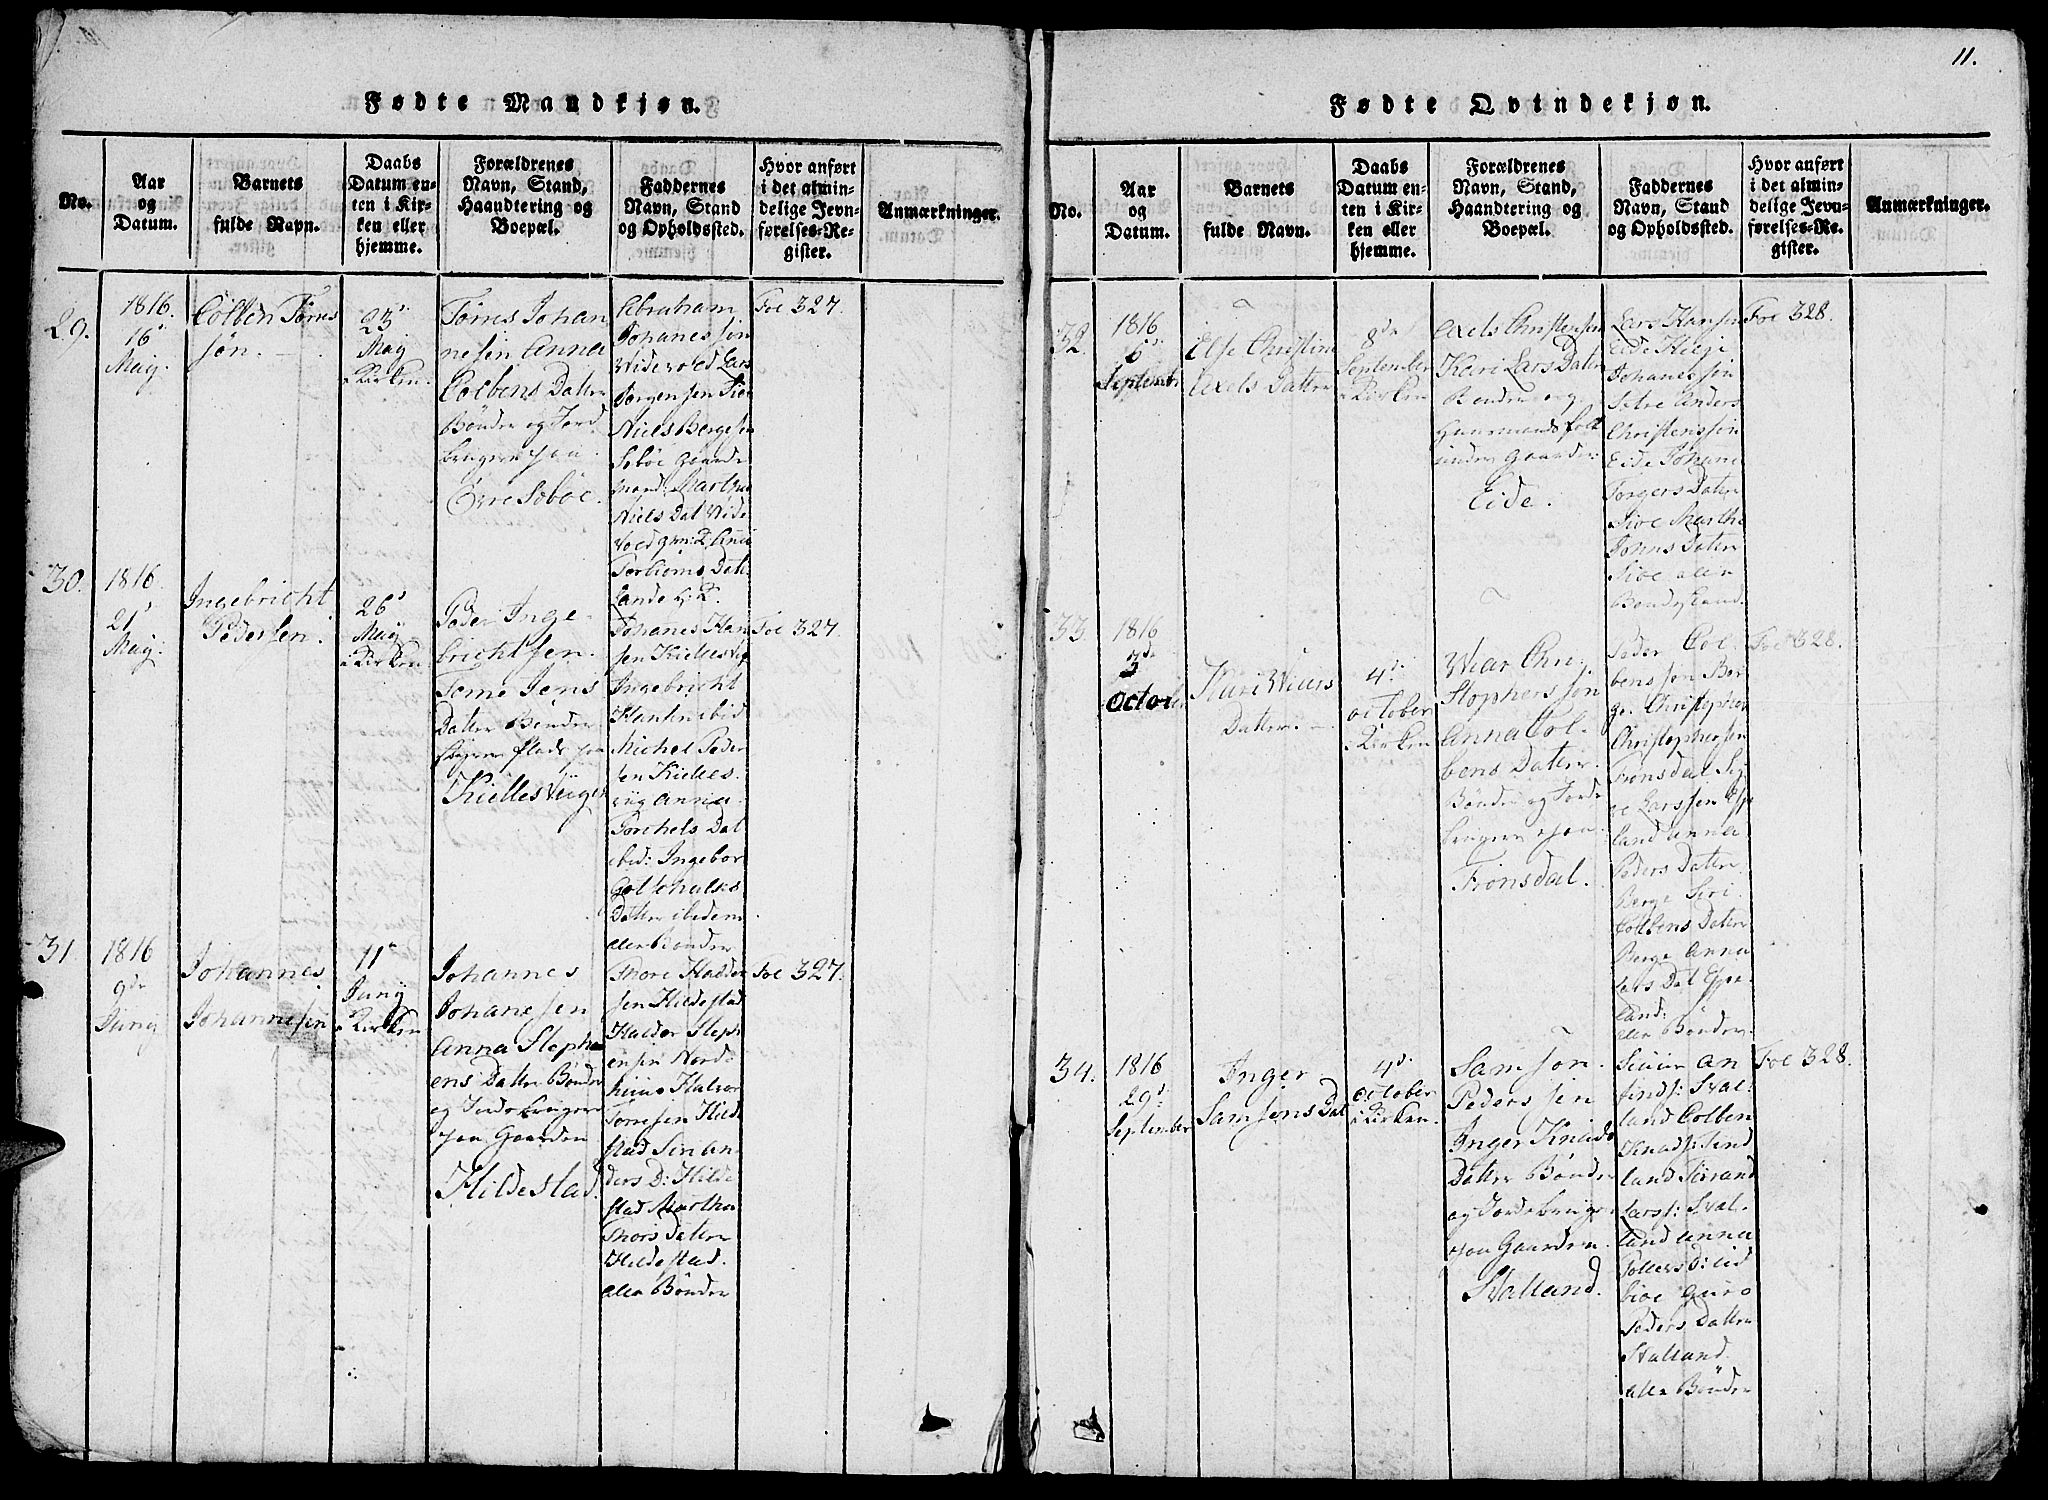 11.
Fødte Mandkjøn.
No.
Aar
og
Datum.
Barnets
fulde Navn.
Daabs
Datum en-
ten i Kir-
ken eller
hjemme.
Forældrenes
Navn, Stand,
Haandtering og
Boepæl.
Faddernes
Navn, Stand
og Opholdssted.
Hvor anført
i det almin-
delige Jevn-
førelses-Re-
gister.
Anmærkninger.
29.
1816.
16
Maij.
Colben Tørres
søn.
23
Maij
i Kirken.
Tørres Johan
nesen Anna
Colbens Datter
Bønder og Jord
brugere paa
Øvre Sobøe.
Abraham
Johanessen
Widevold Lars
Jørgensen
Niels Bergesen
Sobøe gaard
mand: Martha
Niels Dat Wide
vold
Torbiørns Datr
Lande
Foe 327.
30.
1816.
21
Maij.
Ingebricht
Pedersen.
26
Maij
i Kirken
Peder Inge-
brichtsen.
Jens
Datter Bønder
Kiellesviigen
Johanes Han
sen Kiellesvig
Ingebricht
Hansen ibid
Michel Peder
sen Kielles-
viig Anna
Torchels Dat
ibid: Ingebor
Gotschalks
Datter ibidem
alle Bønder
Foe 327.
31
1816
9de
Junij
Johannes
Johannesen
11
Junij
i Kirken
Johannes
Johanesen
Anna Steph
ens Datter Bønder
og Jordebrugere
paa Gaarden
Hildestad.
Thore Halder
sen Hildestad
Haldor Steph
ensen Nord-
heim Halvor
Torresen Hilde
stad Siri An-
ders D: Hilde
stad Martha
Thors Datter
Hildestad.
alle Bønder
Foe 327.
Fødte Qvindekjøn.
No.
Aar
og
Datum.
Barnets
fulde Navn.
Daabs
Datum en-
ten i Kir-
ken eller
hjemme.
Forældrenes
Navn, Stand,
Haandtering og
Boepæl.
Faddernes
Navn, Stand
og Opholdssted.
Hvor anført
i det almin-
delige Jevn-
førelses-Re-
gister.
Anmærkninger.
32.
1816
6
September
Else Christine
Axels Datter
8de
September
i Kirken
Axels Christensen
Kari Lars Datter
Bønder og
Huusmandsfolk
under Gaarden
Eide.
Lars Hansen
Eide Helje
Johanessen
Sætre Anders
Christenssøn
Eide Johane
Torgers Datter
Siøe Marthe
Johns Datter
Siøe alle
Bondestand.
Foe 328.
33.
1816
3de
October
Kari Wiars
Datter.
4de
October
i Kirken
Wiar Chri
stopherssøn
Anna Col-
bens Datter
Bønder og Jorde
brugere paa
Frønsdal.
Peder Col
benssøn Ber
ge. Christopher
Christophersen
Frønsdal
Larssen Espe
land Anna
Peders Datter
Berge Siri
Colbens Datter
Berge Anna
Lars Dat Espe-
land:
alle Bønder.
Foe 328.
34.
1816
29de
September
Inger
Samsons Dat
4de
October
i Kirken.
Samson
Pederssen
Inger Knuds
Datter Bønder
og Jordebruge-
re paa Gaarden
Svalland.
Siver An
finds: Sval-
land Colben
Knuds: Sand
land
Lars: Sval-
land Anna
Tollevs D: Lid
bioe Guro
Peders Datter
Svalland.
alle Bønder
Foe 328.